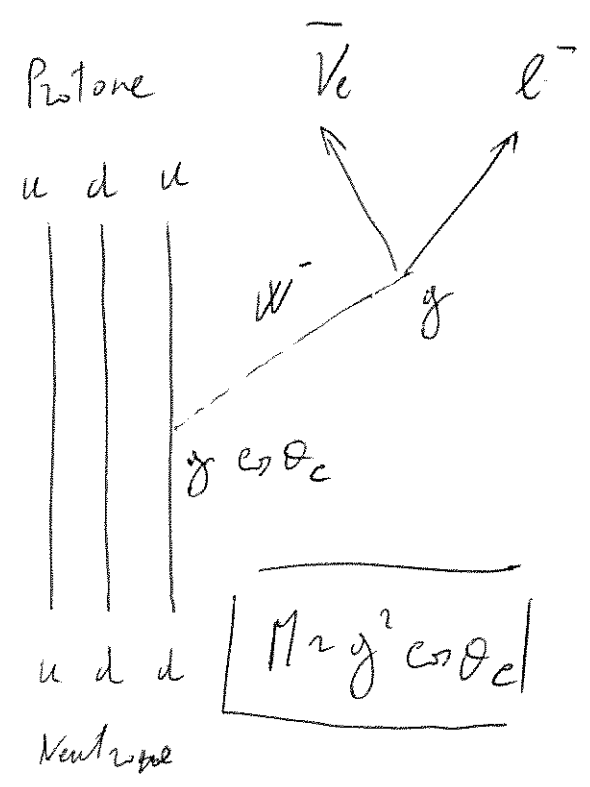 Protone
ν̄e
l⁻
u d u
W⁻
g
g cos θc
M ~ g² cos θc
u d d
Neutrone